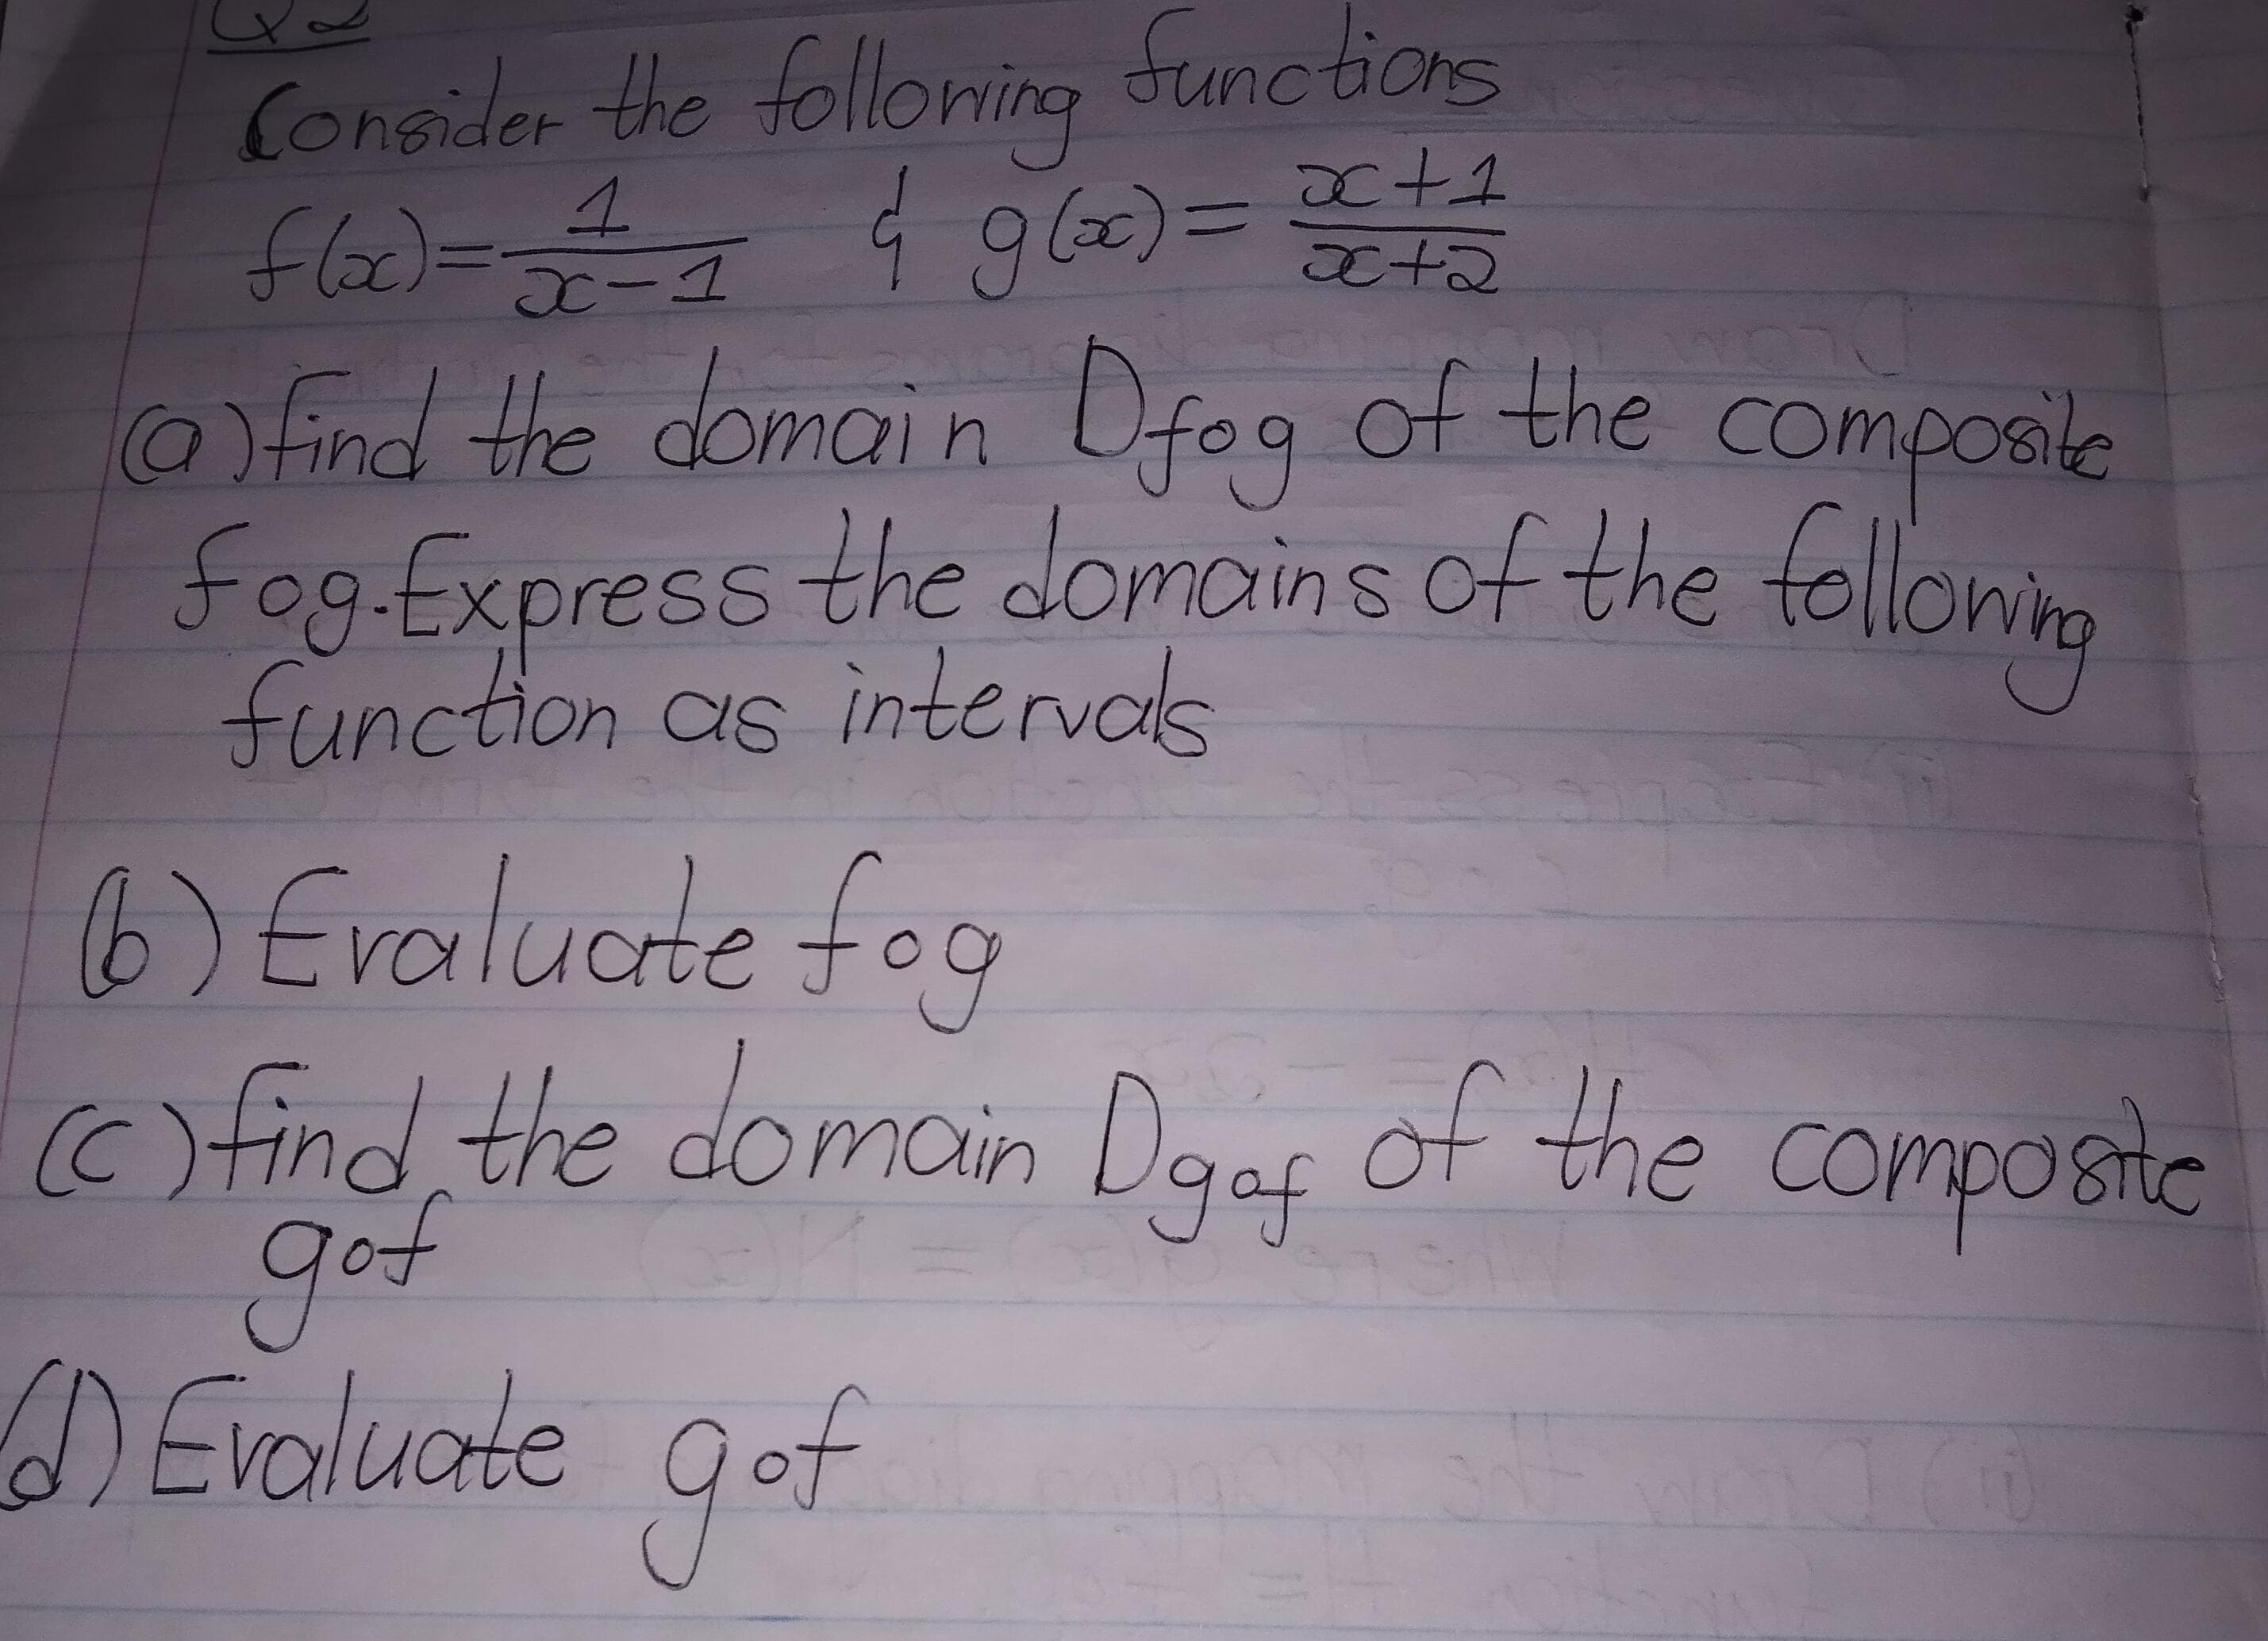 Q2
Consider the following functions
f(x) = 1/(x-1) & g(x) = (x+1)/(x+2)
(a) find the domain Dfog of the composite
fog. Express the domains of the following
function as intervals
(b) Evaluate fog
(c) find the domain Dgof of the composite
gof
(d) Evaluate gof